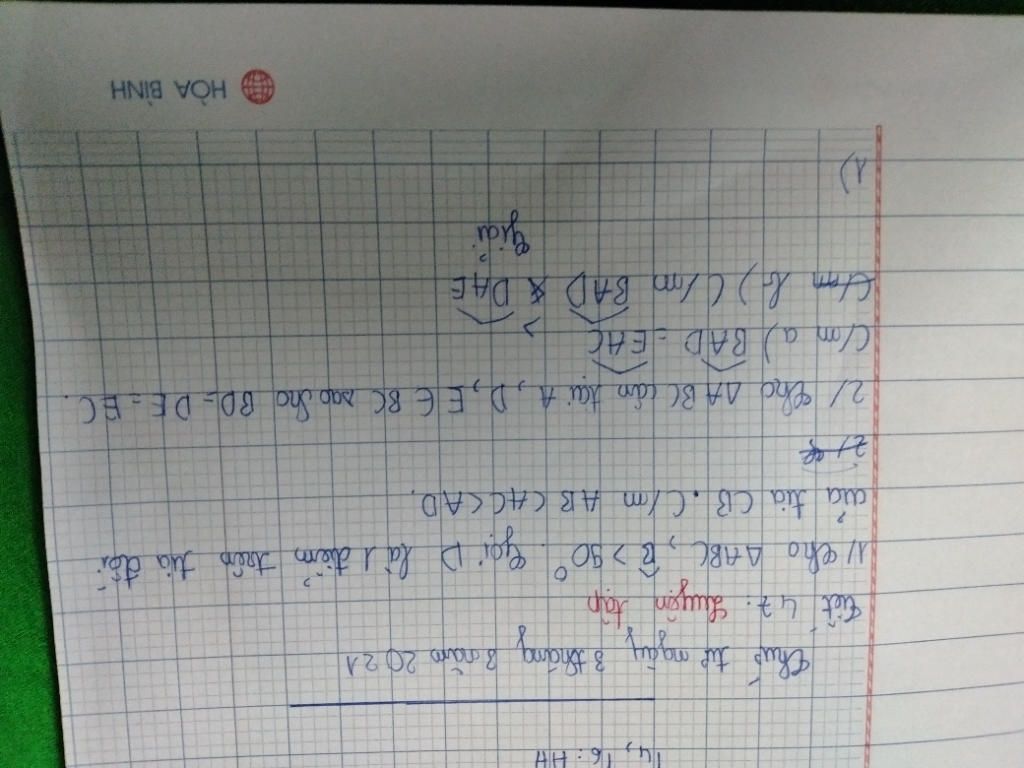 T4, T6: HH
Thứ tư ngày 3 tháng 3 năm 2021
Tiết 47: Luyện tập
1/ Cho ΔABC, B̂ > 90°. Gọi D là 1 điểm trên tia đối
của tia CB. C/m AB < AC < AD.
2/
2/ Cho ΔABC cân tại A, D, E ∈ BC sao cho BD = DE = EC.
C/m a) BAD = EAC
C/m b) C/m BAD > DAE
Giải
1)
HÒA BÌNH